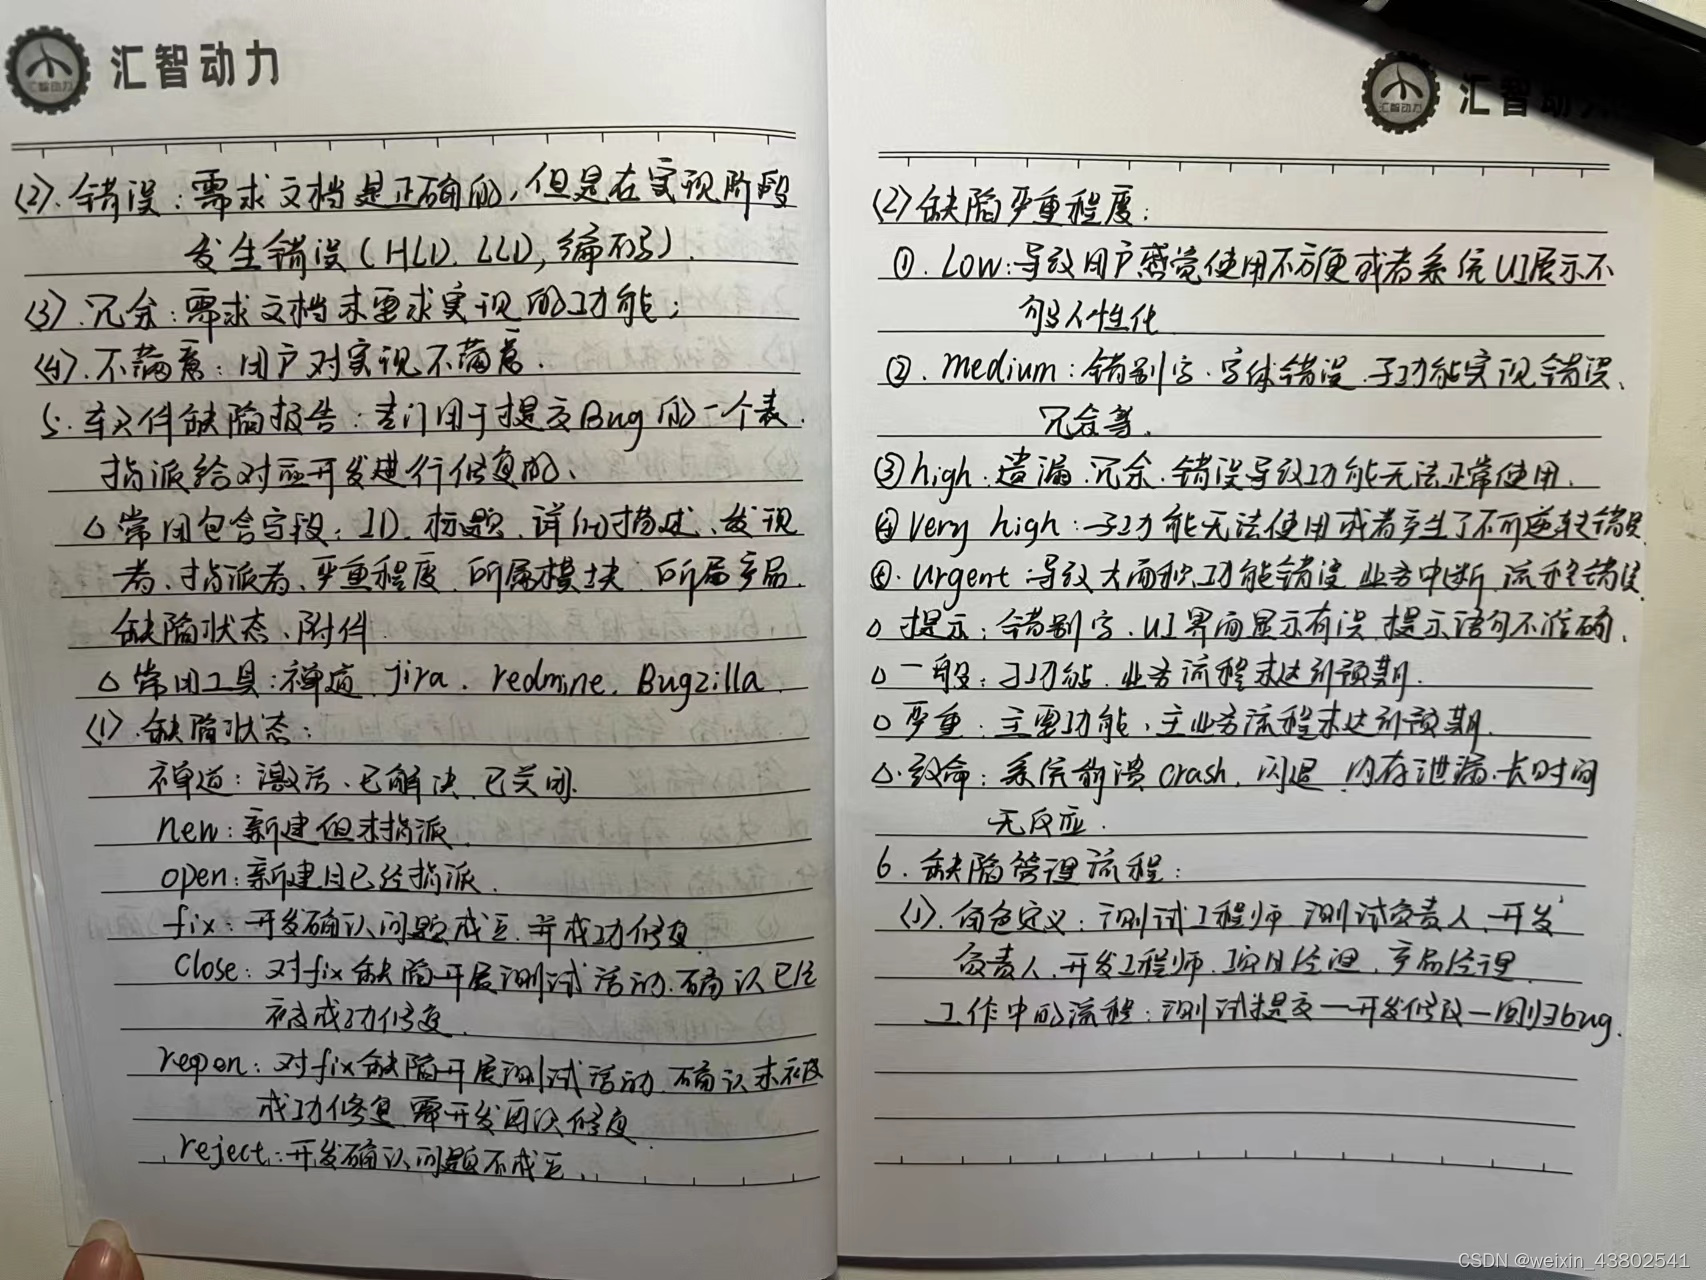 汇智动力
(2).错误：需求文档是正确的,但是在实现阶段
发生错误(HLD、LLD,编码).
(3).冗余：需求文档未要求实现的功能;
(4).不满意：用户对实现不满意.
5.软件缺陷报告：专门用于提交Bug的一个表.
指派给对应开发进行修复的、
△常用包含字段：ID、标题、详细描述、发现
者、指派者、严重程度、所属模块、所属产品
缺陷状态、附件
△常用工具：禅道、Jira、redmine、Bugzilla
(1).缺陷状态：
禅道：激活、已解决、已关闭.
new：新建但未指派
open：新建且已经指派.
fix：开发确认问题成立,并成功修复
Close：对fix缺陷开展测试活动.确认已经
被成功修复.
reopen：对fix缺陷开展测试活动.确认未被
成功修复,需开发再次修复
reject：开发确认问题不成立.
汇智动
(2)缺陷严重程度：
①.Low：导致用户感觉使用不方便或者系统UI展示不
够人性化
②.medium：错别字、字体错误、子功能实现错误、
冗余等.
③high：遗漏、冗余、错误导致功能无法正常使用.
④very high：子功能无法使用或者产生了不可逆转错误
④.urgent：导致大面积功能错误、业务中断、流程错误
△提示：错别字、UI界面显示有误、提示语句不准确、
△一般：子功能、业务流程未达到预期.
△严重：主要功能、主业务流程未达到预期.
△.致命：系统崩溃crash、闪退、内存泄漏、长时间
无反应.
6.缺陷管理流程：
(1).角色定义：测试工程师、测试负责人、开发
负责人、开发工程师、项目经理、产品经理
工作中的流程：测试提交—开发修改—回归bug.
CSDN @weixin_43802541